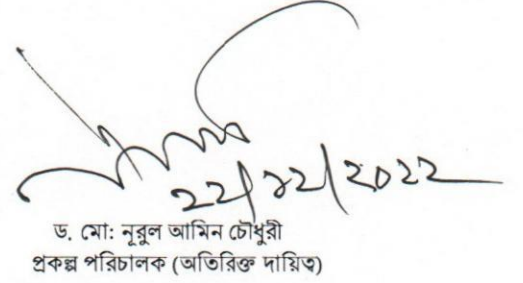 ২২/১২/২০২২
ড. মো: নূরুল আমিন চৌধুরী
প্রকল্প পরিচালক (অতিরিক্ত দায়িত্ব)